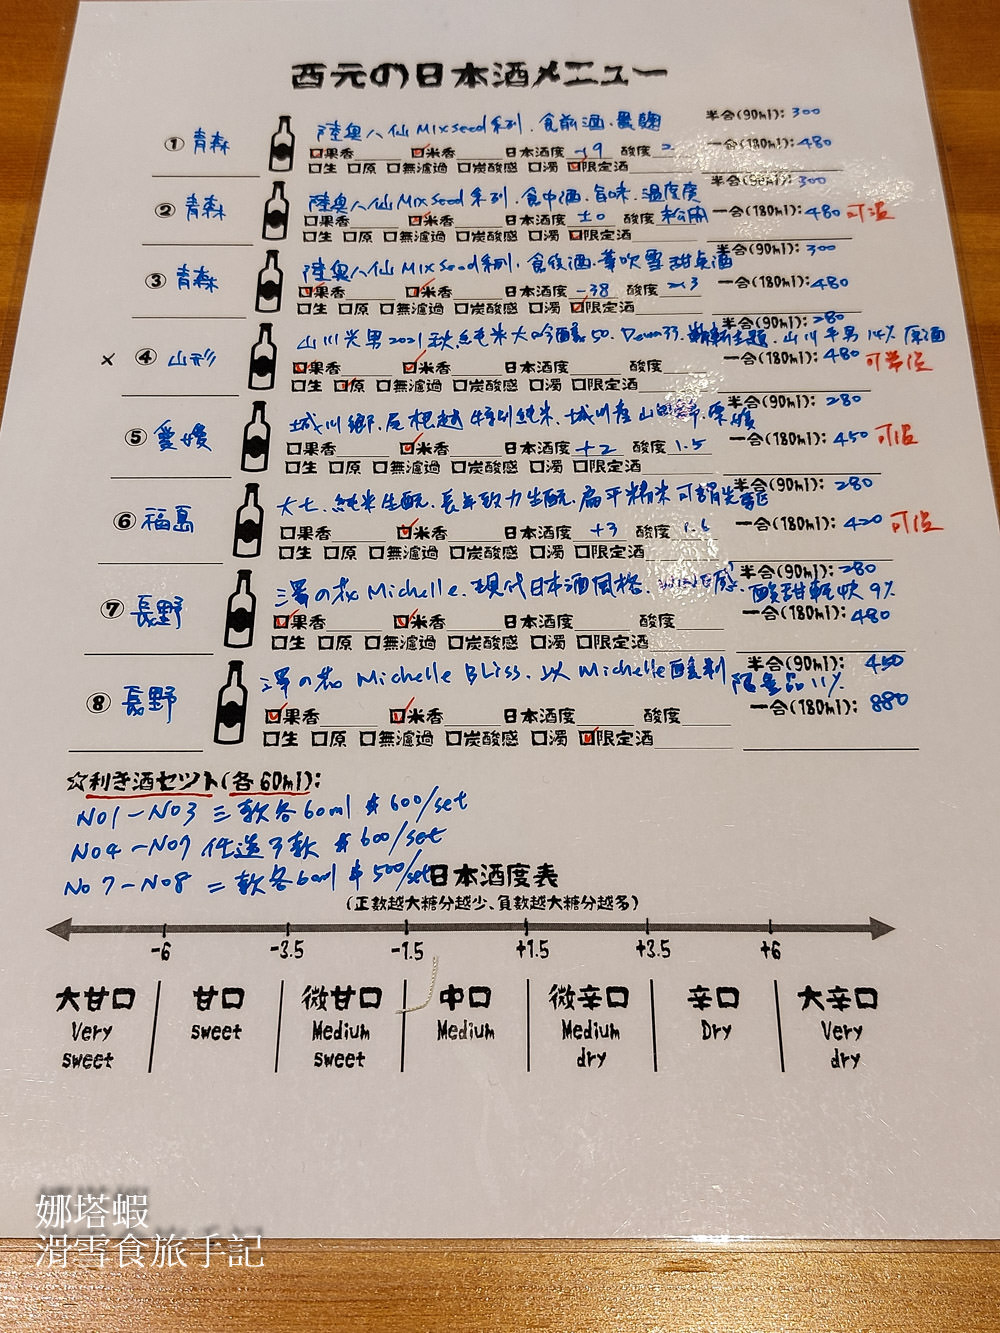 酉元の日本酒メニュー
① 青森 陸奥八仙 Mix seed 系列、食前酒、 半合(90ml): 300
果香 米香 日本酒度 -19 酸度 2 一合(180ml): 480
生 原 無濾過 炭酸感 濁 限定酒
② 青森 陸奥八仙 Mix seed 系列、食中酒、旨味、溫度度 半合(90ml): 300
果香 米香 日本酒度 ±0 酸度 一合(180ml): 480 可溫
生 原 無濾過 炭酸感 濁 限定酒
③ 青森 陸奥八仙 Mix Seed 系列、食後酒、華吹雪 甜点酒 半合(90ml): 300
果香 米香 日本酒度 -38 酸度 一合(180ml): 480
生 原 無濾過 炭酸感 濁 限定酒
x ④ 山形 山川光男 2021 秋 純米大吟釀 50、 主題、山川光男 14% 原酒 半合(90ml): 280
果香 米香 日本酒度 酸度 一合(180ml): 480
生 原 無濾過 炭酸感 濁 限定酒
⑤ 愛媛 城川郷、尾根越 特別純米、城川産山田錦、 半合(90ml): 280
果香 米香 日本酒度 +2 酸度 1.5 一合(180ml): 450 可溫
生 原 無濾過 炭酸感 濁 限定酒
⑥ 福島 大七、純米生酛、長年致力生酛、扁平精米可謂先驅 半合(90ml): 280
果香 米香 日本酒度 +3 酸度 1.6 一合(180ml): 420 可溫
生 原 無濾過 炭酸感 濁 限定酒
⑦ 長野 澤の花 Michelle、現代日本酒風格、 酸甜輕快 9% 半合(90ml): 280
果香 米香 日本酒度 酸度 一合(180ml): 480
生 原 無濾過 炭酸感 濁 限定酒
⑧ 長野 澤の花 Michelle Bliss、以 Michelle 釀製 限量品 11% 半合(90ml): 450
果香 米香 日本酒度 酸度 一合(180ml): 880
生 原 無濾過 炭酸感 濁 限定酒
☆利き酒セット(各60ml):
No1-No3 三款各60ml $600/set
No4-No7 任選3款 $600/set
No7-No8 二款各60ml $500/set
日本酒度表
(正數越大糖分越少、負數越大糖分越多)
-6 -3.5 -1.5 +1.5 +3.5 +6
大甘口 甘口 微甘口 中口 微辛口 辛口 大辛口
Very sweet Medium Medium Medium Dry Very
sweet sweet dry dry
娜塔蝦
滑雪食旅手記